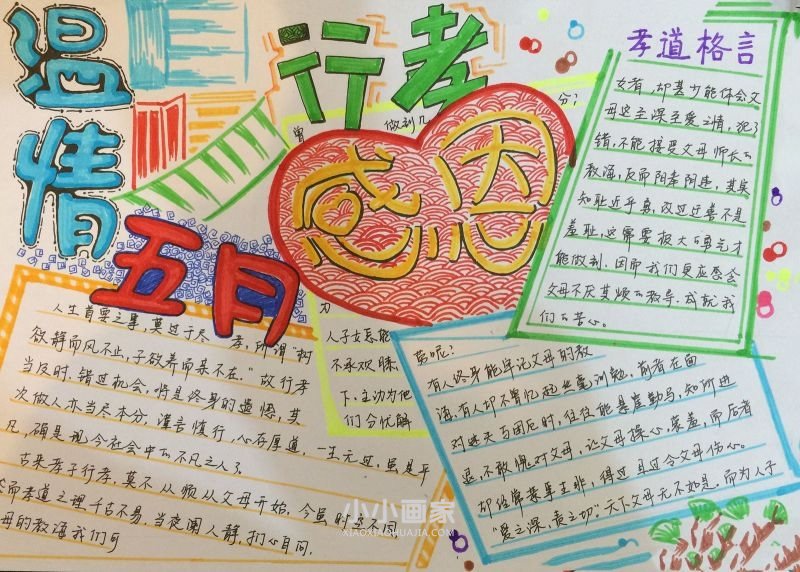 温情
五月
行孝
感恩
孝道格言
女者,却甚少能体会父
母这至深至爱之情,犯了
错,不能接受父母师长的
教诲,反而阴奉阳违,其实
知耻近乎勇,改过迁善不是
羞耻,这需要极大的勇气才
能做到,因而我们更应感念
父母不厌其烦的教导,成就我
们的苦心。
曾
做到几
分?
为
人子女忘能
不承欢膝
下,主动为他
们分忧解
劳呢?
人生首要之事,莫过于尽孝,所谓“树
欲静而风不止,子欲养而亲不在。”故行孝
当及时,错过机会,将是终身的遗憾,其
次做人亦当尽本分,谨言慎行,心存厚道,一生无过,虽是平
凡,确是现今社会中的不凡之人了。
古来孝子行孝,莫不从顺从父母开始,今虽时迁不同
然而孝道之理千古不易,当夜阑人静,扪心自问,
母的教诲我们可
有人终身能牢记父母的教
诲,有人却不曾忆起些毫训勉,前者在面
对迷失与困厄时,往往能悬崖勒马,知所进
退,不敢愧对父母,让父母操心,蒙羞,而后者
却经常惹事生非,得过且过令父母伤心。
“爱之深,责之切”天下父母无不如是,而为人子
小小画家
XIAOXIAOHUAJIA.COM